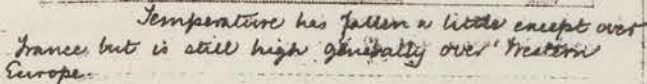 Temperature has fallen a little except over
France but is still high generally over Western
Europe.